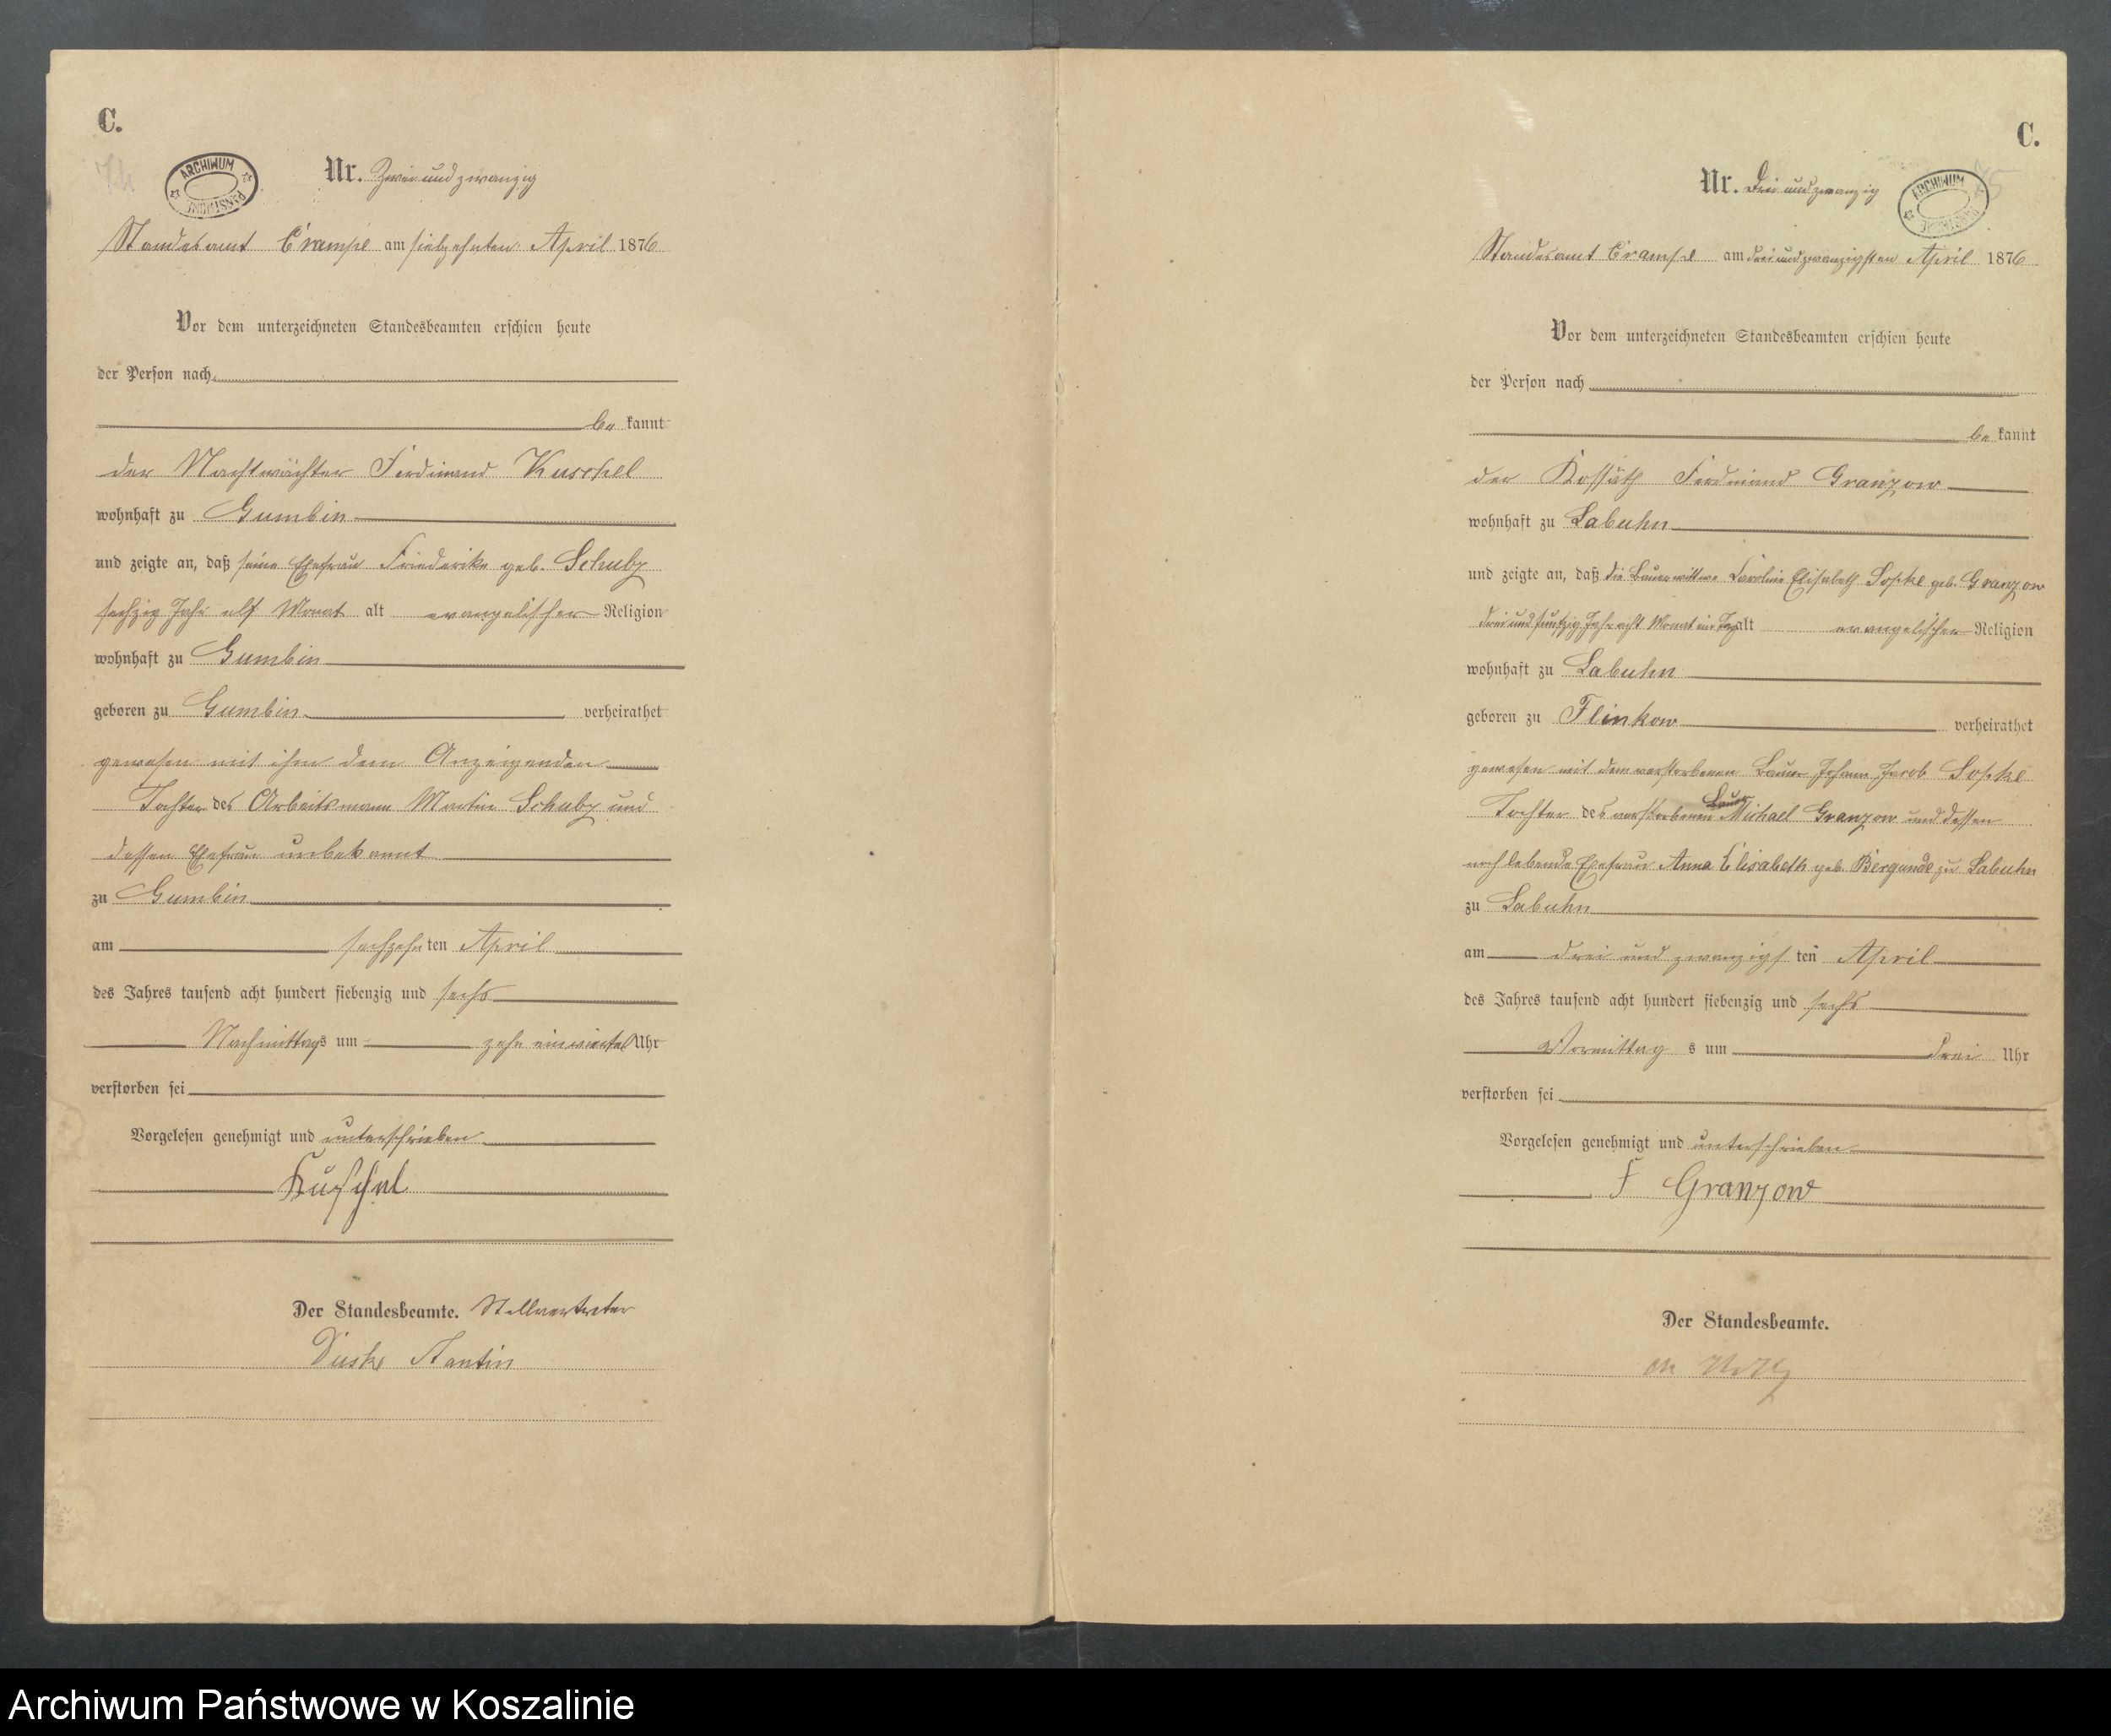 C.
ARCHIWUM
Nr. Zwei und zwanzig
Standesamt Crampe am siebzehnten April 1876
Vor dem unterzeichneten Standesbeamten erschien heute
der Person nach
be kannt
der Nachtwächter Ferdinand Kuschel
wohnhaft zu Gumbin
und zeigte an, daß seine Ehefrau Friederike geb. Schulz
sechzig Jahr elf Monat alt evangelischer Religion
wohnhaft zu Gumbin
geboren zu Gumbin verheirathet
gewesen mit ihm dem Anzeigenden
Tochter des Arbeitsmann Martin Schulz und
dessen Ehefrau unbekannt
zu Gumbin
am sechzehn ten April
des Jahres tausend acht hundert siebenzig und sechs
Nachmittags um zehn ein viertel Uhr
verstorben sei
Vorgelesen genehmigt und unterschrieben
Kuschel
Der Standesbeamte. Stellvertreter
C.
Nr. Drei und zwanzig
ARCHIWUM
Standesamt Crampe am drei und zwanzigsten April 1876
Vor dem unterzeichneten Standesbeamten erschien heute
der Person nach
be kannt
der Kossäth Ferdinand Granzow
wohnhaft zu Labuhn
und zeigte an, daß die Bauerwittwe Caroline Elisabeth Sopke geb. Granzow
drei und funfzig Jahr acht Monat ein Tag alt evangelischer Religion
wohnhaft zu Labuhn
geboren zu Flinkow verheirathet
gewesen mit dem verstorbenen Bauer Johann Jacob Sopke
Tochter des verstorbenen Bauer Michael Granzow und dessen
noch lebende Ehefrau Anna Elisabeth geb. Bergande zu Labuhn
zu Labuhn
am drei und zwanzigs ten April
des Jahres tausend acht hundert siebenzig und sechs
Vormittag s um drei Uhr
verstorben sei
Vorgelesen genehmigt und unterschrieben
F Granzow
Der Standesbeamte.
Archiwum Państwowe w Koszalinie